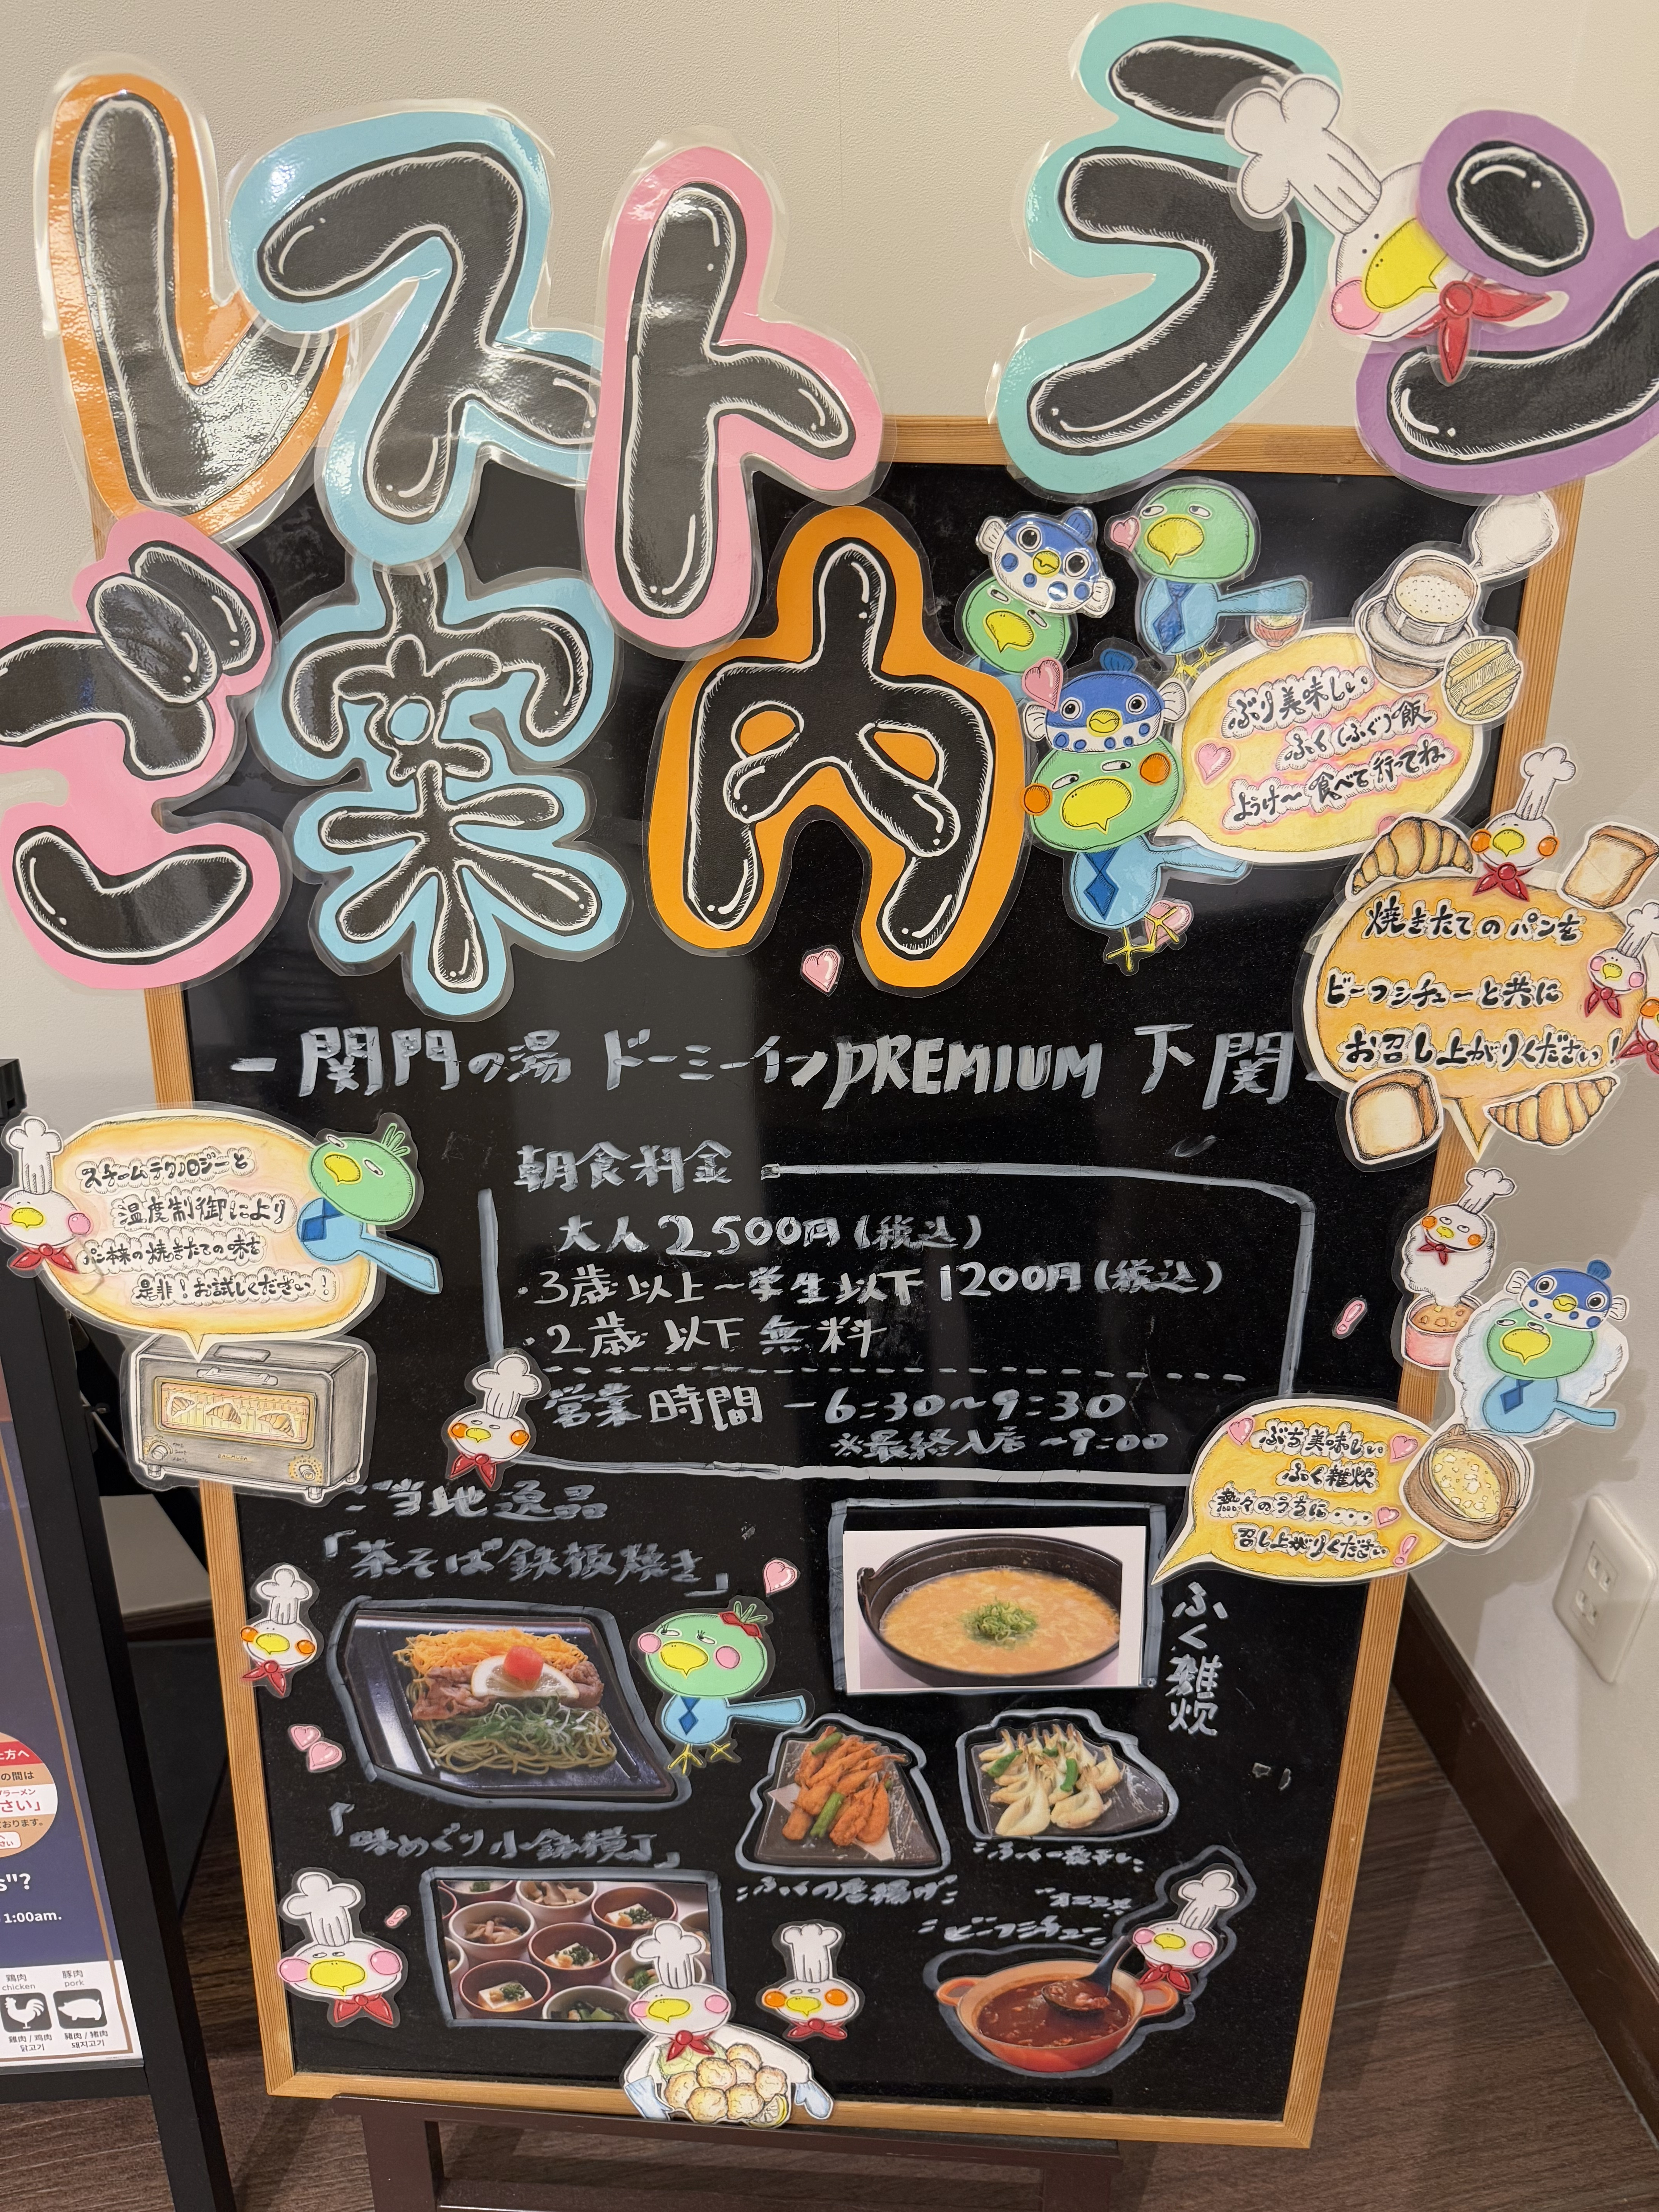 レストラン
ご案内
ぶり美味しい
ふく(ふぐ)飯
ようけ〜食べて行ってね
焼きたてのパンを
ビーフシチューと共に
お召し上がりください!
ー関門の湯 ドーミーインPREMIUM 下関
スチームテクノロジーと
温度制御により
パン本来の焼きたての味を
是非!お試しください!
朝食料金
大人2500円(税込)
・3歳以上〜学生以下1200円(税込)
・2歳以下無料
営業時間 ー6:30〜9:30
※最終入店〜9:00
ぶち美味しい
ふく雑炊
熱々のうちに...
召し上がりください
ご当地逸品
「茶そば鉄板焼き」
ふく雑炊
「味めぐり小鉢横丁」
ふくの一夜干し
ふくの唐揚げ
ビーフシチュー
方へ
の間は
ラーメン
さい」
おります。
s"?
1:00am.
鶏肉
chicken
豚肉
pork
雞肉 / 鸡肉
닭고기
豬肉 / 猪肉
돼지고기